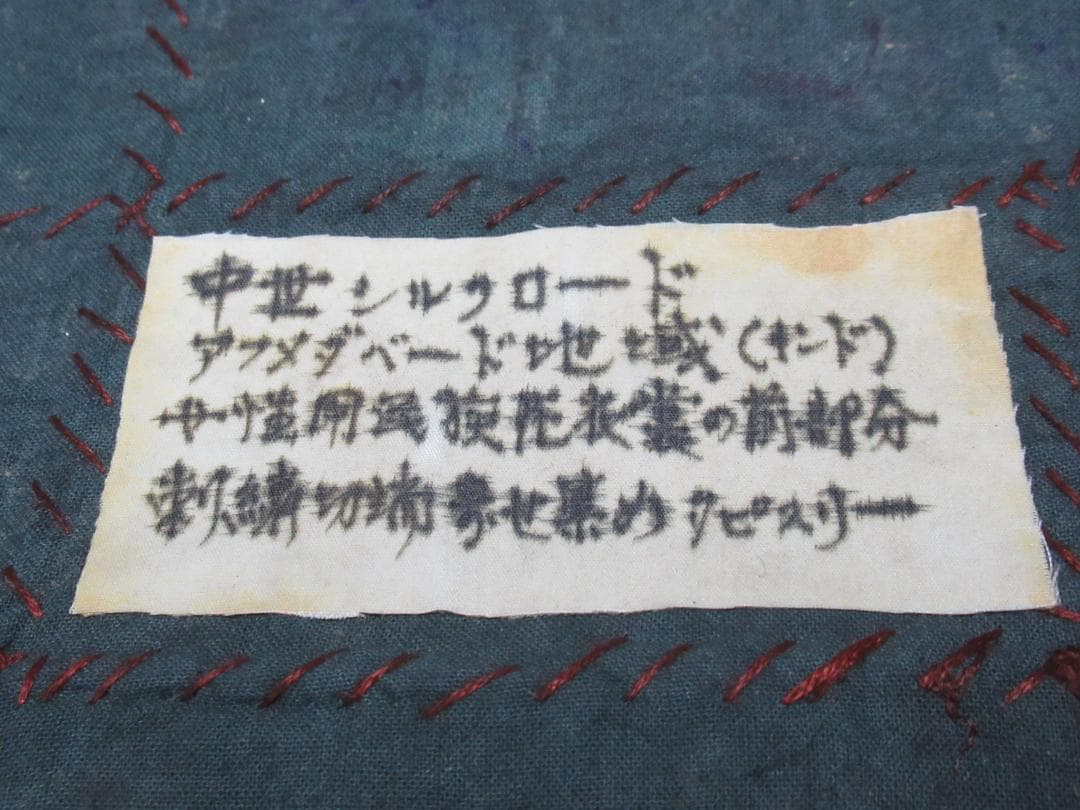 中世シルクロード
アフメダバード地域(キンド)
女性用民族花衣裳の前部分
刺繍切端寄せ集め タピスリー